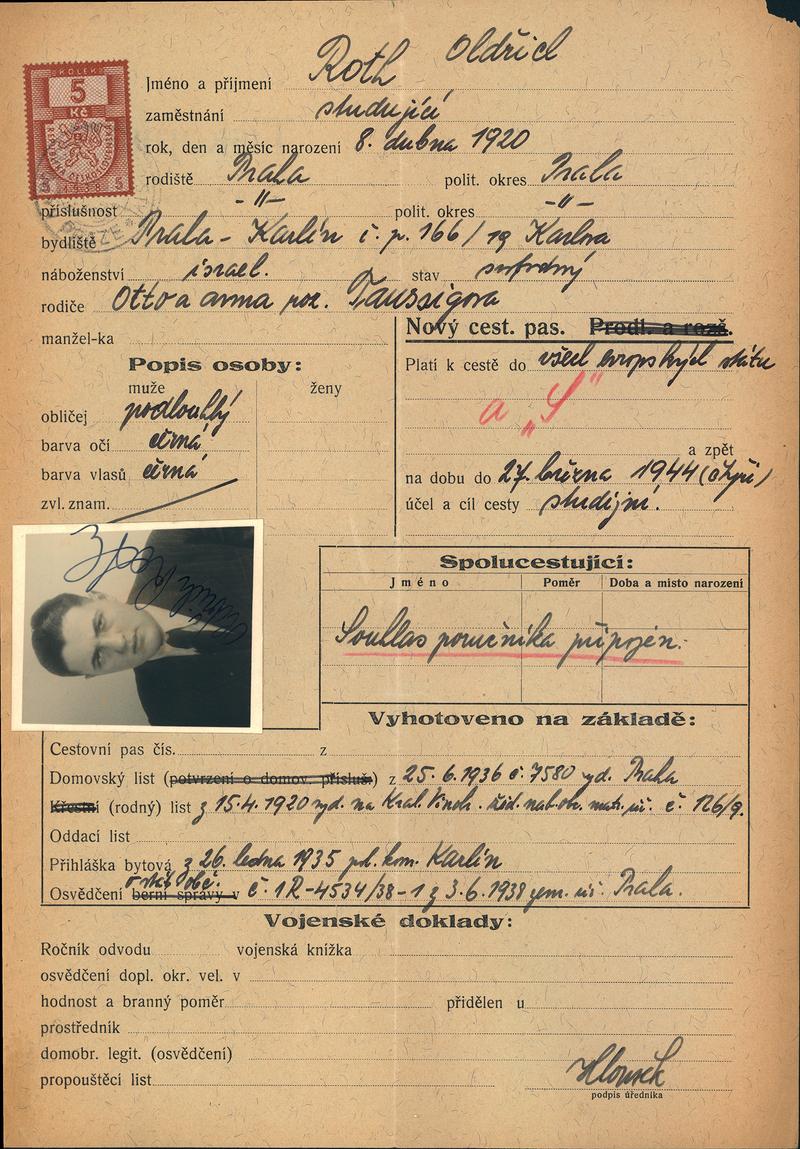 KOLEK
5
Kč
REPUBLIKA ČESKOSLOVENSKÁ
5 1938 5
Jméno a příjmení Roth Oldřich
zaměstnání studující
rok, den a měsíc narození 8. dubna 1920
rodiště Praha polit. okres Praha
příslušnost -"- polit. okres -"-
bydliště Praha - Karlín č. p. 166/19 Karlova
náboženství israel. stav svobodný
rodiče Otto a roz. Taussigova
manžel-ka
Nový cest. pas. Prodl. a rozš.
Popis osoby:
muže ženy
obličej podlouhlý
barva očí černá
barva vlasů černá
zvl. znam.
Platí k cestě do všech evropských států
a "S"
a zpět
na dobu do 27. března 1944 (čtyři)
účel a cíl cesty studijní.
Oldřich Roth
Spolucestující:
Jméno Poměr Doba a místo narození
Souhlas poručníka připojen.
Vyhotoveno na základě:
Cestovní pas čís. z
Domovský list (potvrzení o domov. přísluš.) z 25. 6. 1936 č. 7580 vyd. Praha
Křestní (rodný) list z 15. 4. 1920 vyd. na Král. Vinoh. žid. nab. ob. matr. úř. č. 126/9.
Oddací list
Přihláška bytová z 26. ledna 1935 pol. kom. Karlín
Osvědčení berní správy v o stát. obč. č. 1R-4534/38-1 z 3. 6. 1938 zem. úř. Praha.
Vojenské doklady:
Ročník odvodu vojenská knížka
osvědčení dopl. okr. vel. v
hodnost a branný poměr přidělen u
prostředník
domobr. legit. (osvědčení)
propouštěcí list
Hlousek
podpis úředníka